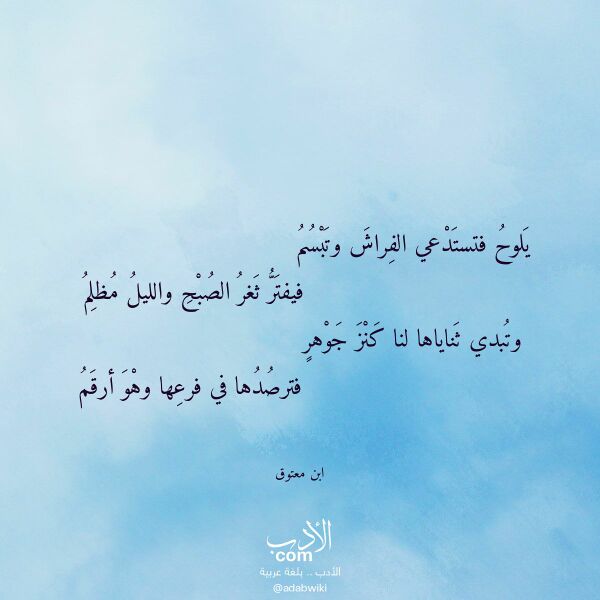 يَلوحُ فتستَدْعي الفِراشَ وتَبْسُمُ
فيفتَرُّ ثَغرُ الصُبْحِ والليلُ مُظلِمُ
وتُبدي ثَناياها لنا كَنْزَ جَوْهرٍ
فترصُدُها في فرعِها وهْوَ أرقَمُ
ابن معتوق
الأدب
com
الأدب .. بلغة عربية
@adabwiki